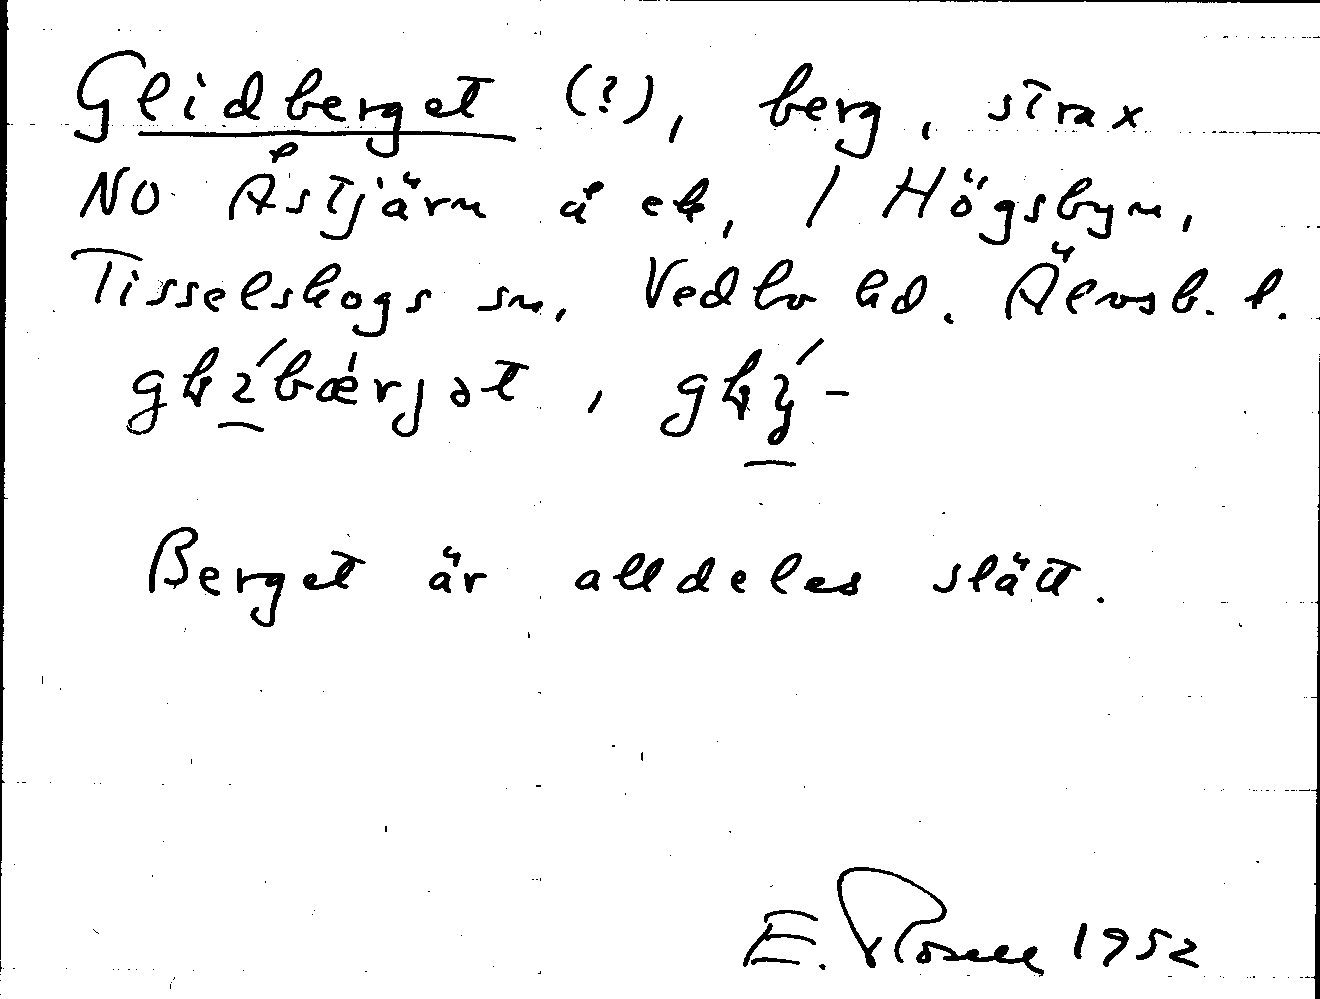 Glidberget (?), berg, strax
NO Åstjärn å ek, / Högsbyn,
Tisselskogs sn, Vedbo hd. Älvsb. l.
Berget är alldeles slätt.
E. Rosell 1952